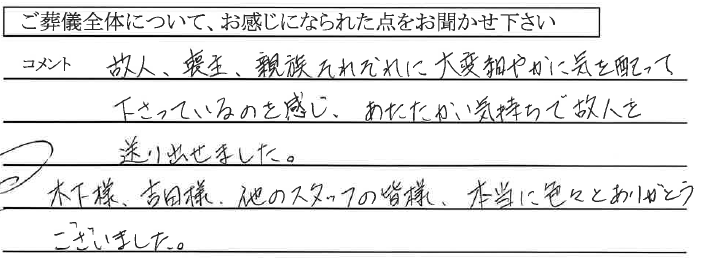 ご葬儀全体について、お感じになられた点をお聞かせ下さい
コメント 故人、喪主、親族それぞれに大変細やかに気を配って
下さっているのを感じ、あたたかい気持ちで故人を
送り出せました。
木下様、吉田様、他のスタッフの皆様、本当に色々とありがとう
ございました。